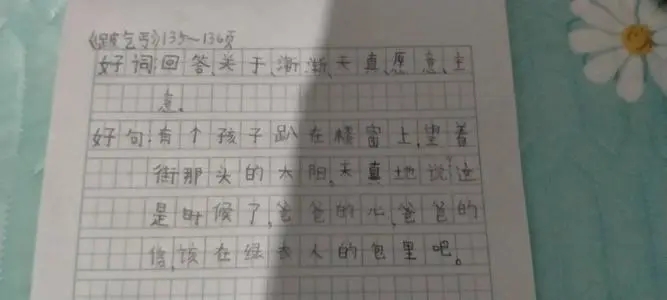 《皮气丐》135~136页
好词:回答、关于、渐渐、天真、愿意、主
意。
好句:有个孩子趴在楼窗上,望着
街那头的大胆,天真地说:这
是时候了,爸爸的心,爸爸的
信,该在绿衣人的包里吧。